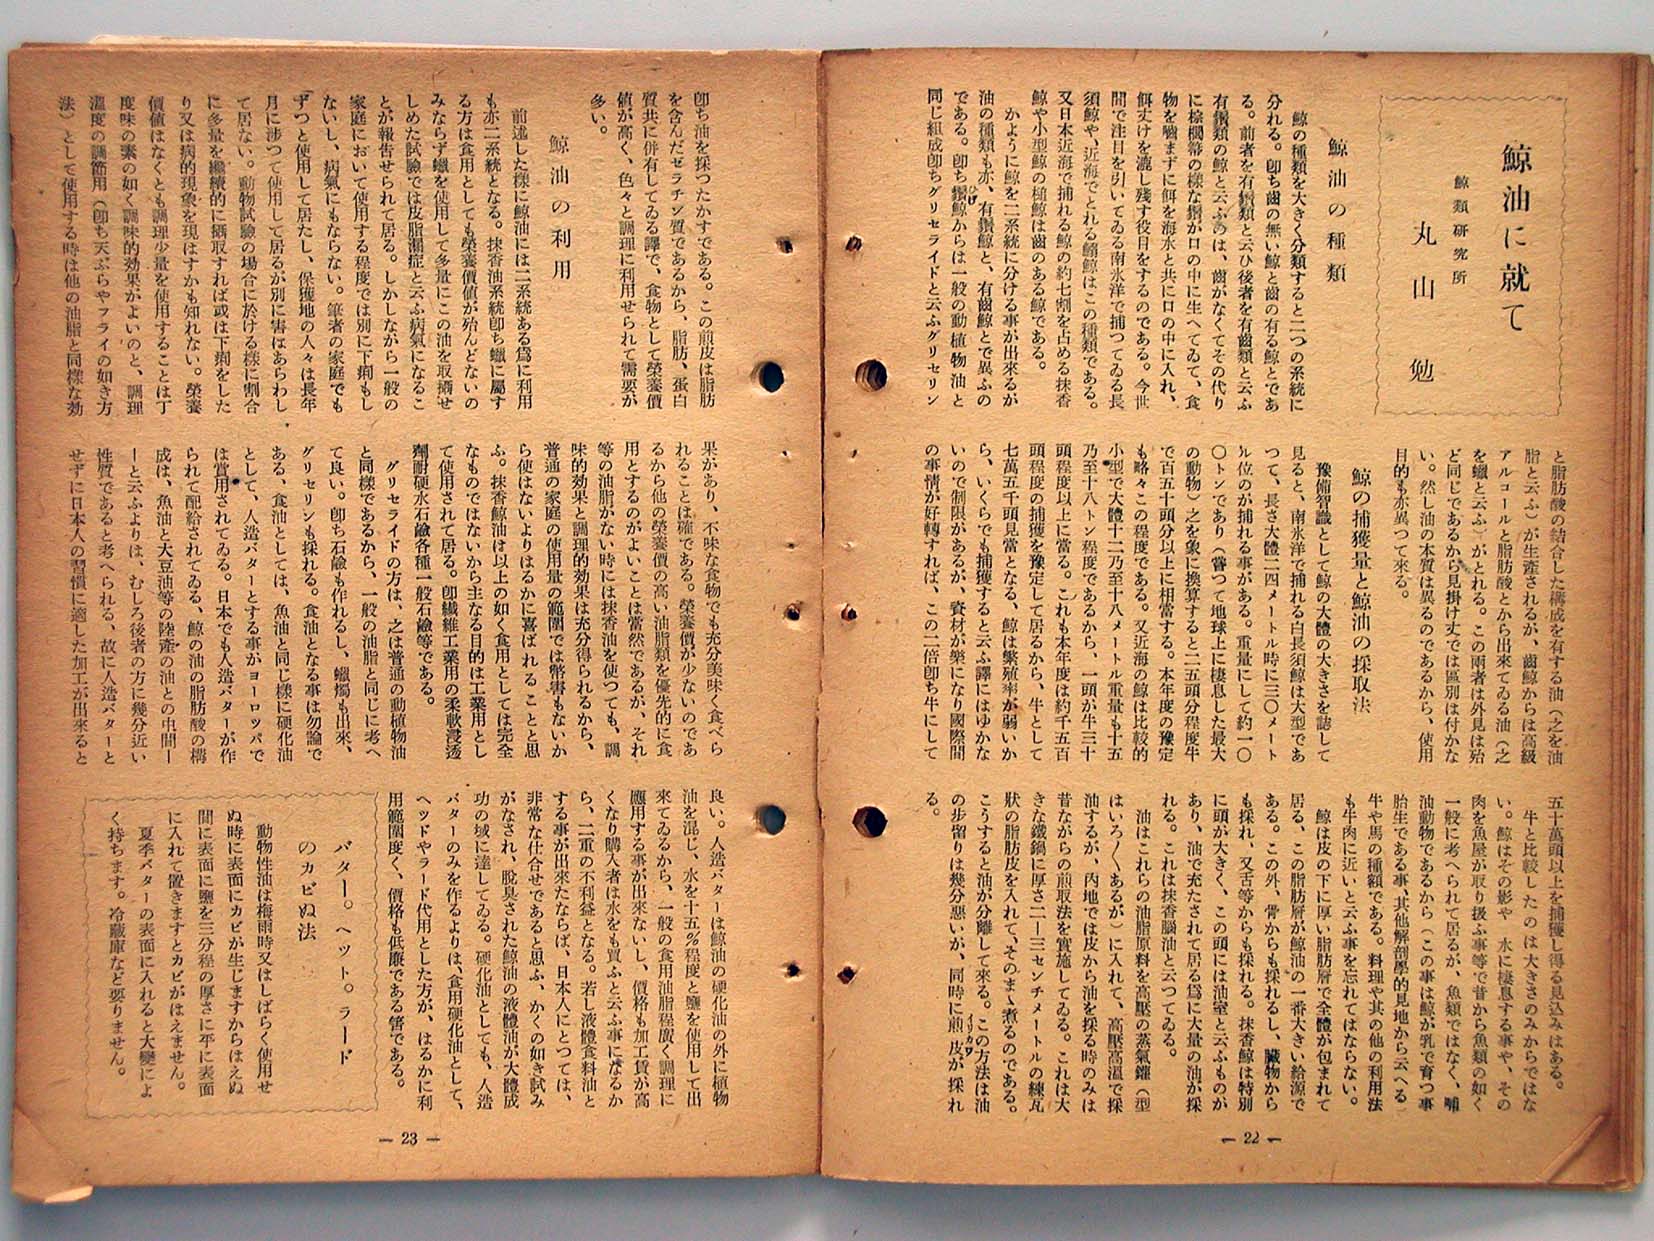 鯨油に就て
鯨類研究所
丸山勉
鯨油の種類
鯨の種類を大きく分類すると二つの系統に
分れる。卽ち齒の無い鯨と齒の有る鯨とであ
る。前者を有鬚類と云ひ後者を有齒類と云ふ
有鬚類の鯨と云ふのは、齒がなくてその代り
に棕櫚箒の樣な鬚が口の中に生へてゐて、食
物を嚙まずに餌を海水と共に口の中に入れ、
餌丈けを漉し殘す役目をするのである。今世
間で注目を引いてゐる南氷洋で捕つてゐる長
須鯨や、近海でとれる鰮鯨はこの種類である。
又日本近海で捕れる鯨の約七割を占める抹香
鯨や小型鯨の槌鯨は齒のある鯨である。
かように鯨を二系統に分ける事が出來るが
油の種類も亦、有鬚鯨と、有齒鯨とで異ふの
である。卽ち鬚鯨からは一般の動植物油と
同じ組成卽ちグリセライドと云ふグリセリン
と脂肪酸の結合した構成を有する油（之を油
脂と云ふ）が生產されるが、齒鯨からは高級
アルコールと脂肪酸とから出來てゐる油（之
を蠟と云ふ）がとれる。この兩者は外見は殆
ど同じであるから見掛け丈では區別は付かな
い。然し油の本質は異るのであるから、使用
目的も亦異つて來る。
鯨の捕獲量と鯨油の採取法
豫備智識として鯨の大體の大きさを誌して
見ると、南氷洋で捕れる白長須鯨は大型であ
つて、長さ大體二四メートル時に三〇メート
ル位のが捕れる事がある。重量にして約一〇
〇トンであり（嘗つて地球上に棲息した最大
の動物）之を象に換算すると二五頭分程度牛
で百五十頭分以上に相當する。本年度の豫定
も略々この程度である。又近海の鯨は比較的
小型で大體十二乃至十八メートル重量も十五
乃至十八トン程度であるから、一頭が牛三十
頭程度以上に當る。これも本年度は約千五百
頭程度の捕獲を豫定して居るから、牛として
七萬五千頭見當となる、鯨は繁殖率が弱いか
ら、いくらでも捕獲すると云ふ譯にはゆかな
いので制限があるが、資材が樂になり國際間
の事情が好轉すれば、この二倍卽ち牛にして
五十萬頭以上を捕獲し得る見込みはある。
牛と比較したのは大きさのみからではな
い。鯨はその影や 水に棲息する事や、その
肉を魚屋が取り扱ふ事等で昔から魚類の如く
一般に考へられて居るが、魚類ではなく、哺
油動物であるから（この事は鯨が乳で育つ事
胎生である事、其他解剖學的見地から云へる
牛や馬の種額である。料理や其の他の利用法
も牛肉に近いと云ふ事を忘れてはならない。
鯨は皮の下に厚い脂肪層で全體が包まれて
居る、この脂肪層が鯨油の一番大きい給源で
ある。この外、骨からも採れるし、臟物から
も採れ、又舌等からも採れる。抹香鯨は特別
に頭が大きく、この頭には油室と云ふものが
あり、油で充たされて居る爲に大量の油が採
れる。これは抹香腦油と云つてゐる。
油はこれらの油脂原料を高壓の蒸氣鑵（型
はいろ〳〵あるが）に入れて、高壓高溫で採
油するが、內地では皮から油を採る時のみは
昔ながらの煎取法を實施してゐる。これは大
きな鐵鍋に厚さ二―三センチメートルの練瓦
狀の脂肪皮を入れて、そのまゝ煮るのである。
こうすると油が分離して來る。この方法は油
の步留りは幾分惡いが、同時に煎皮が採れ
る。
― 22 ―
卽ち油を採つたかすである。この煎皮は脂肪
を含んだゼラチン質であるから、脂肪、蛋白
質共に併有してゐる譯で、食物として榮養價
値が高く、色々と調理に利用せられて需要が
多い。
鯨油の利用
前述した樣に鯨油には二系統ある爲に利用
も亦二系統となる。抹香油系統卽ち蠟に屬す
る方は食用としても榮養價値が殆んどないの
みならず蠟を使用して多量にこの油を取攝せ
しめた試驗では皮脂漏症と云ふ病氣になるこ
とが報吿せられて居る。しかしながら一般の
家庭において使用する程度では別に下痢もし
ないし、病氣にもならない。筆者の家庭でも
ずつと使用して居たし、保獲地の人々は長年
月に涉つて使用して居るが別に害はあらわし
て居ない。動物試驗の場合に於ける樣に割合
に多量を繼續的に攝取すれば或は下痢をした
り又は病的現象を現はすかも知れない。榮養
價値はなくとも調理少量を使用することは丁
度味の素の如く調味的効果がよいのと、調理
溫度の調節用（卽ち天ぷらやフライの如き方
法）として使用する時は他の油脂と同樣な効
果があり、不味な食物でも充分美味く食べら
れることは確である。榮養價が少ないのであ
るから他の榮養價の高い油脂類を優先的に食
用とするのがよいことは當然であるが、それ
等の油脂がない時には抹香油を使つても、調
味的効果と調理的効果は充分得られるから、
普通の家庭の使用量の範圍では弊害もないか
ら使はないよりはるかに喜ばれることと思
ふ。抹香鯨油は以上の如く食用としては完全
なものではないから主なる目的は工業用とし
て使用されて居る。卽纎維工業用の柔軟浸透
劑耐硬水石鹼各種一般石鹼等である。
グリセライドの方は、之は普通の動植物油
と同樣であるから、一般の油脂と同じに考へ
て良い。卽ち石鹼も作れるし、蠟燭も出來、
グリセリンも採れる。食油となる事は勿論で
ある、食油としては、魚油と同じ樣に硬化油
として、人造バターとする事がヨーロッパで
は賞用されてゐる。日本でも人造バターが作
られて配給されてゐる、鯨の油の脂肪酸の構
成は、魚油と大豆油等の陸產の油との中間―
―と云ふよりは、むしろ後者の方に幾分近い
性質であると考へられる、故に人造バターと
せずに日本人の習慣に適した加工が出來ると
良い。人造バターは鯨油の硬化油の外に植物
油を混じ、水を十五％程度と鹽を使用して出
來てゐるから、一般の食用油脂程廣く調理に
應用する事が出來ないし、價格も加工賃が高
くなり購入者は水をも買ふと云ふ事になるか
ら、二重の不利益となる。若し液體食料油と
する事が出來たならば、日本人にとつては、
非常な仕合せであると思ふ、かくの如き試み
がなされ、脫臭された鯨油の液體油が大體成
功の域に達してゐる。硬化油としても、人造
バターのみを作るよりは、食用硬化油として、
ヘツドやラード代用とした方が、はるかに利
用範圍度く、價格も低廉である筈である。
バター。ヘツト。ラード
のカビぬ法
動物性油は梅雨時又はしばらく使用せ
ぬ時に表面にカビが生じますからはえぬ
間に表面に鹽を三分程の厚さに平に表面
に入れて置きますとカビがはえません。
夏季バターの表面に入れると大變によ
く持ちます。冷藏庫など要りません。
― 23 ―